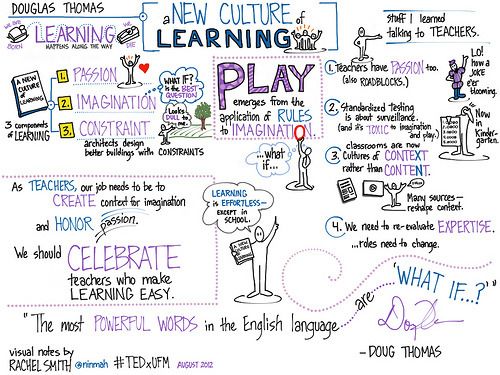 DOUGLAS THOMAS
WE ARE BORN
LEARNING
HAPPENS ALONG THE WAY
WE DIE
a NEW CULTURE of
LEARNING
stuff I learned
talking to TEACHERS.
A NEW
CULTURE
of
LEARNING
3 components
of LEARNING
1. PASSION
2. IMAGINATION
3. CONSTRAINT
architects design
better buildings with CONSTRAINTS
WHAT IF?
is the BEST
QUESTION
PLAY
emerges from the
application of RULES
to IMAGINATION.
...what
if...
1. Teachers have PASSION too.
(also ROADBLOCKS.)
LO!
how a
JOKE
e'er
blooming.
2. Standardized Testing
is about surveillance.
(and it's TOXIC to imagination
and play.)
Now in
Kinder-
garten.
classrooms are now
3. Cultures of CONTEXT
rather than CONTENT.
Many sources—
reshape context.
4. We need to re-evaluate EXPERTISE.
...roles need to change.
As TEACHERS, our job needs to be to
CREATE context for imagination
and HONOR passion.
We should CELEBRATE
teachers who make
LEARNING EASY.
LEARNING
is EFFORTLESS—
EXCEPT IN
SCHOOL.
"The most POWERFUL WORDS in the English language are 'WHAT IF...?'"
– DOUG THOMAS
visual notes by
RACHEL SMITH @ninmah #TEDxUFM AUGUST 2012